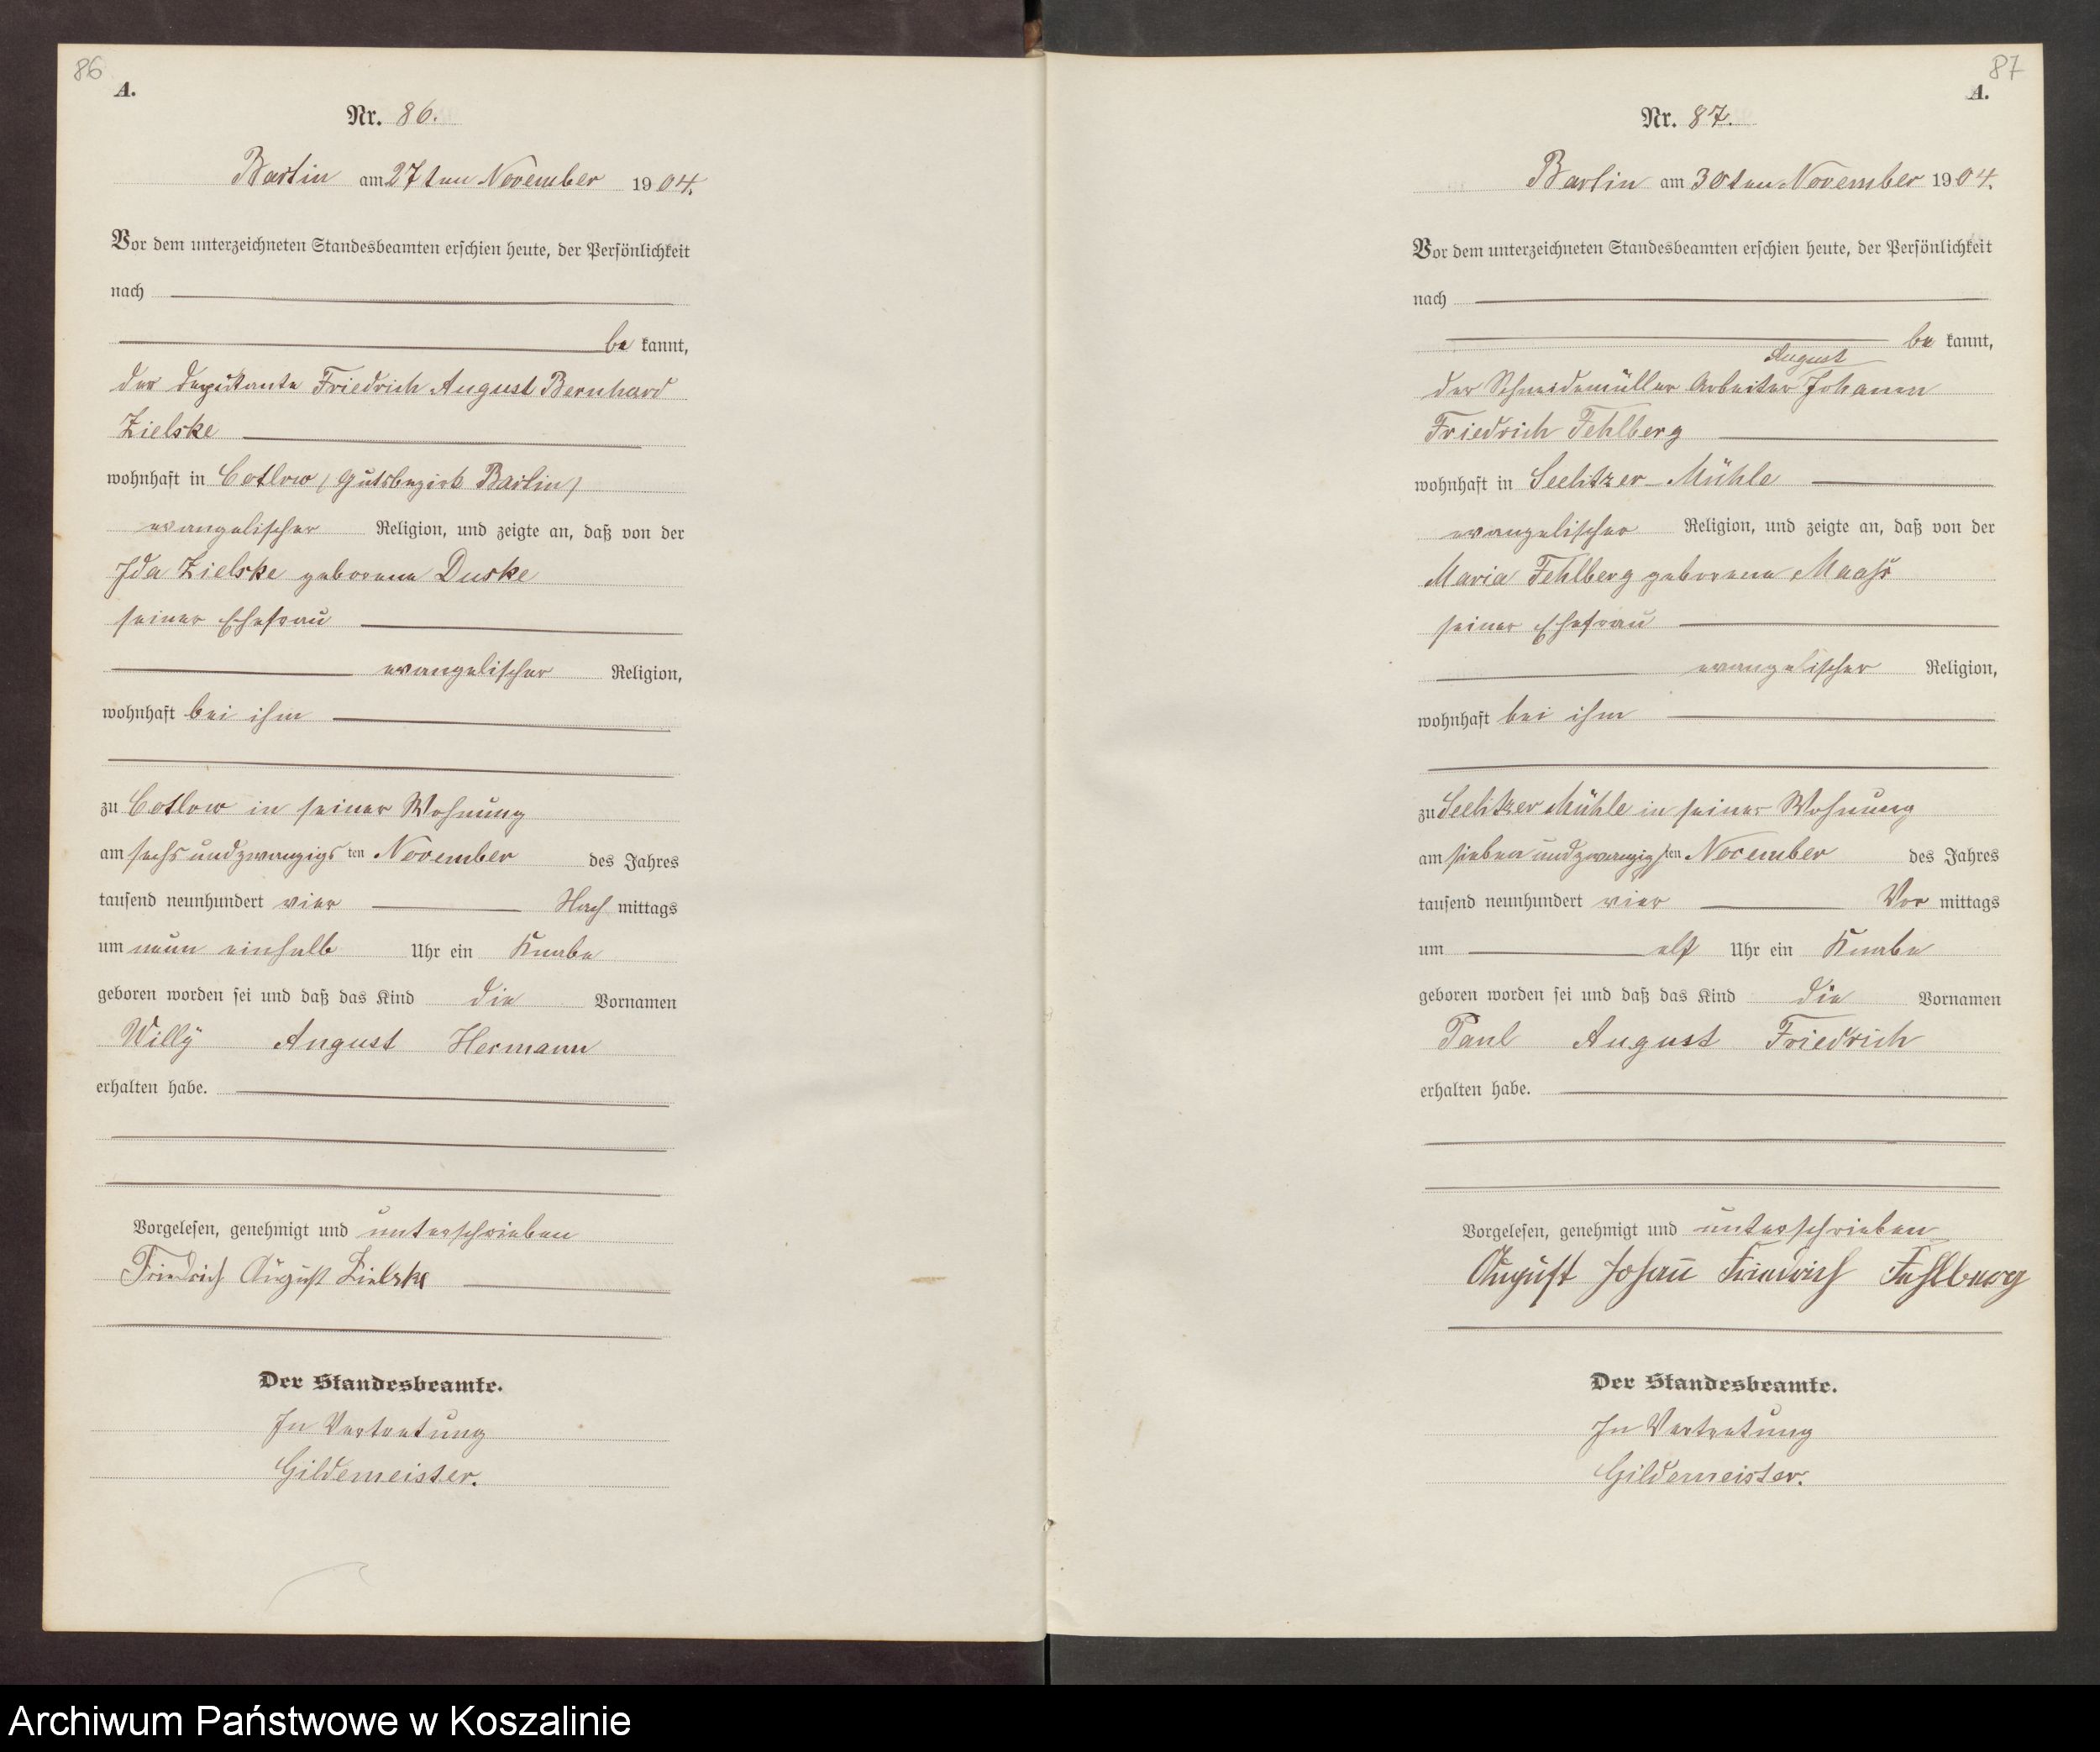 86
A.
Nr. 86.
Bartin am 27ten November 1904.
Vor dem unterzeichneten Standesbeamten erschien heute, der Persönlichkeit
nach
be kannt,
der Deputante Friedrich August Bernhard
Zielske
wohnhaft in Cotlow (Gutsbezirk Bartin)
evangelischer Religion, und zeigte an, daß von der
Ida Zielske geborene Duske
seiner Ehefrau
evangelischer Religion,
wohnhaft bei ihm
zu Cotlow in seiner Wohnung
am sechs und zwanzigs ten November des Jahres
tausend neunhundert vier Nach mittags
um neun einhalb Uhr ein Knabe
geboren worden sei und daß das Kind die Vornamen
Willy August Hermann
erhalten habe.
Vorgelesen, genehmigt und unterschrieben
Friedrich August Zielske
Der Standesbeamte.
In Vertretung
Gildemeister.
87
A.
Nr. 87.
Bartin am 30ten November 1904.
Vor dem unterzeichneten Standesbeamten erschien heute, der Persönlichkeit
nach
be kannt,
August
der Schneidemüller Arbeiter Johann
Friedrich Fehlberg
wohnhaft in Seelitzer-Mühle
evangelischer Religion, und zeigte an, daß von der
Maria Fehlberg geborene Maaß
seiner Ehefrau
evangelischer Religion,
wohnhaft bei ihm
zu Seelitzer Mühle in seiner Wohnung
am sieben und zwanzigs ten November des Jahres
tausend neunhundert vier Vor mittags
um elf Uhr ein Knabe
geboren worden sei und daß das Kind die Vornamen
Paul August Friedrich
erhalten habe.
Vorgelesen, genehmigt und unterschrieben
August Johan̄ Friedrich Fehlberg
Der Standesbeamte.
In Vertretung
Gildemeister.
Archiwum Państwowe w Koszalinie